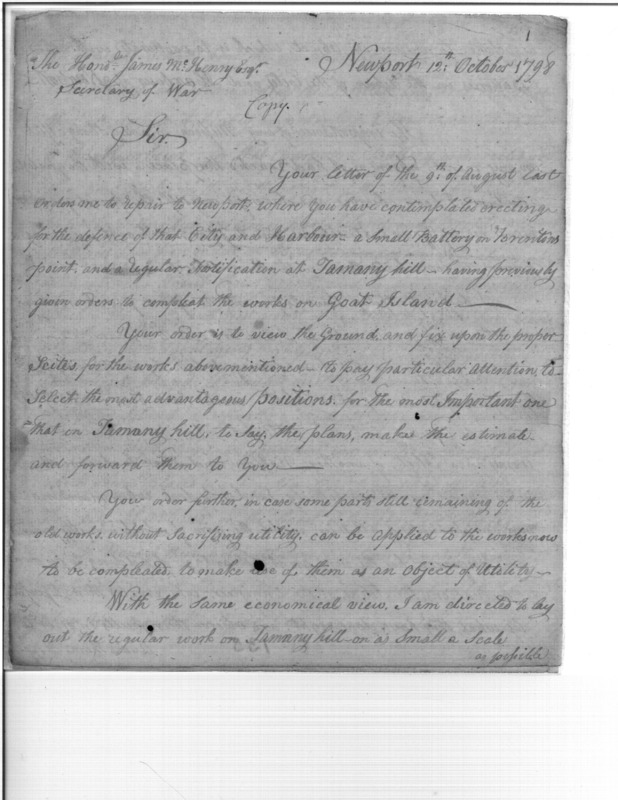 1
The Honble James McHenry Esqr. Newport 12th October 1798
Secretary of War
Copy.
Sir.
Your letter of the 9th of August last
orders me to repair to Newport, where you have contemplated erecting
for the defence of that City and Harbour - a Small Battery on Brentons
point, and a regular Fortification at Tamany hill - having previously
given orders to compleat the works on Goat Island -
Your order is to view the Ground, and fix upon the proper
Scites for the works above mentioned - to pay particular attention, to
Select the most advantageous positions for the most Important one
that on Tamany hill, to lay the plans, make the estimate
and forward them to You -
You order further, in case some parts still remaining of the
old works, without Sacrifising utility, can be applied to the works now
to be compleated to make use of them as an Object of Utility -
With the same economical view, I am directed to lay
out the regular work on Tamany hill - on as Small a Scale
as possible